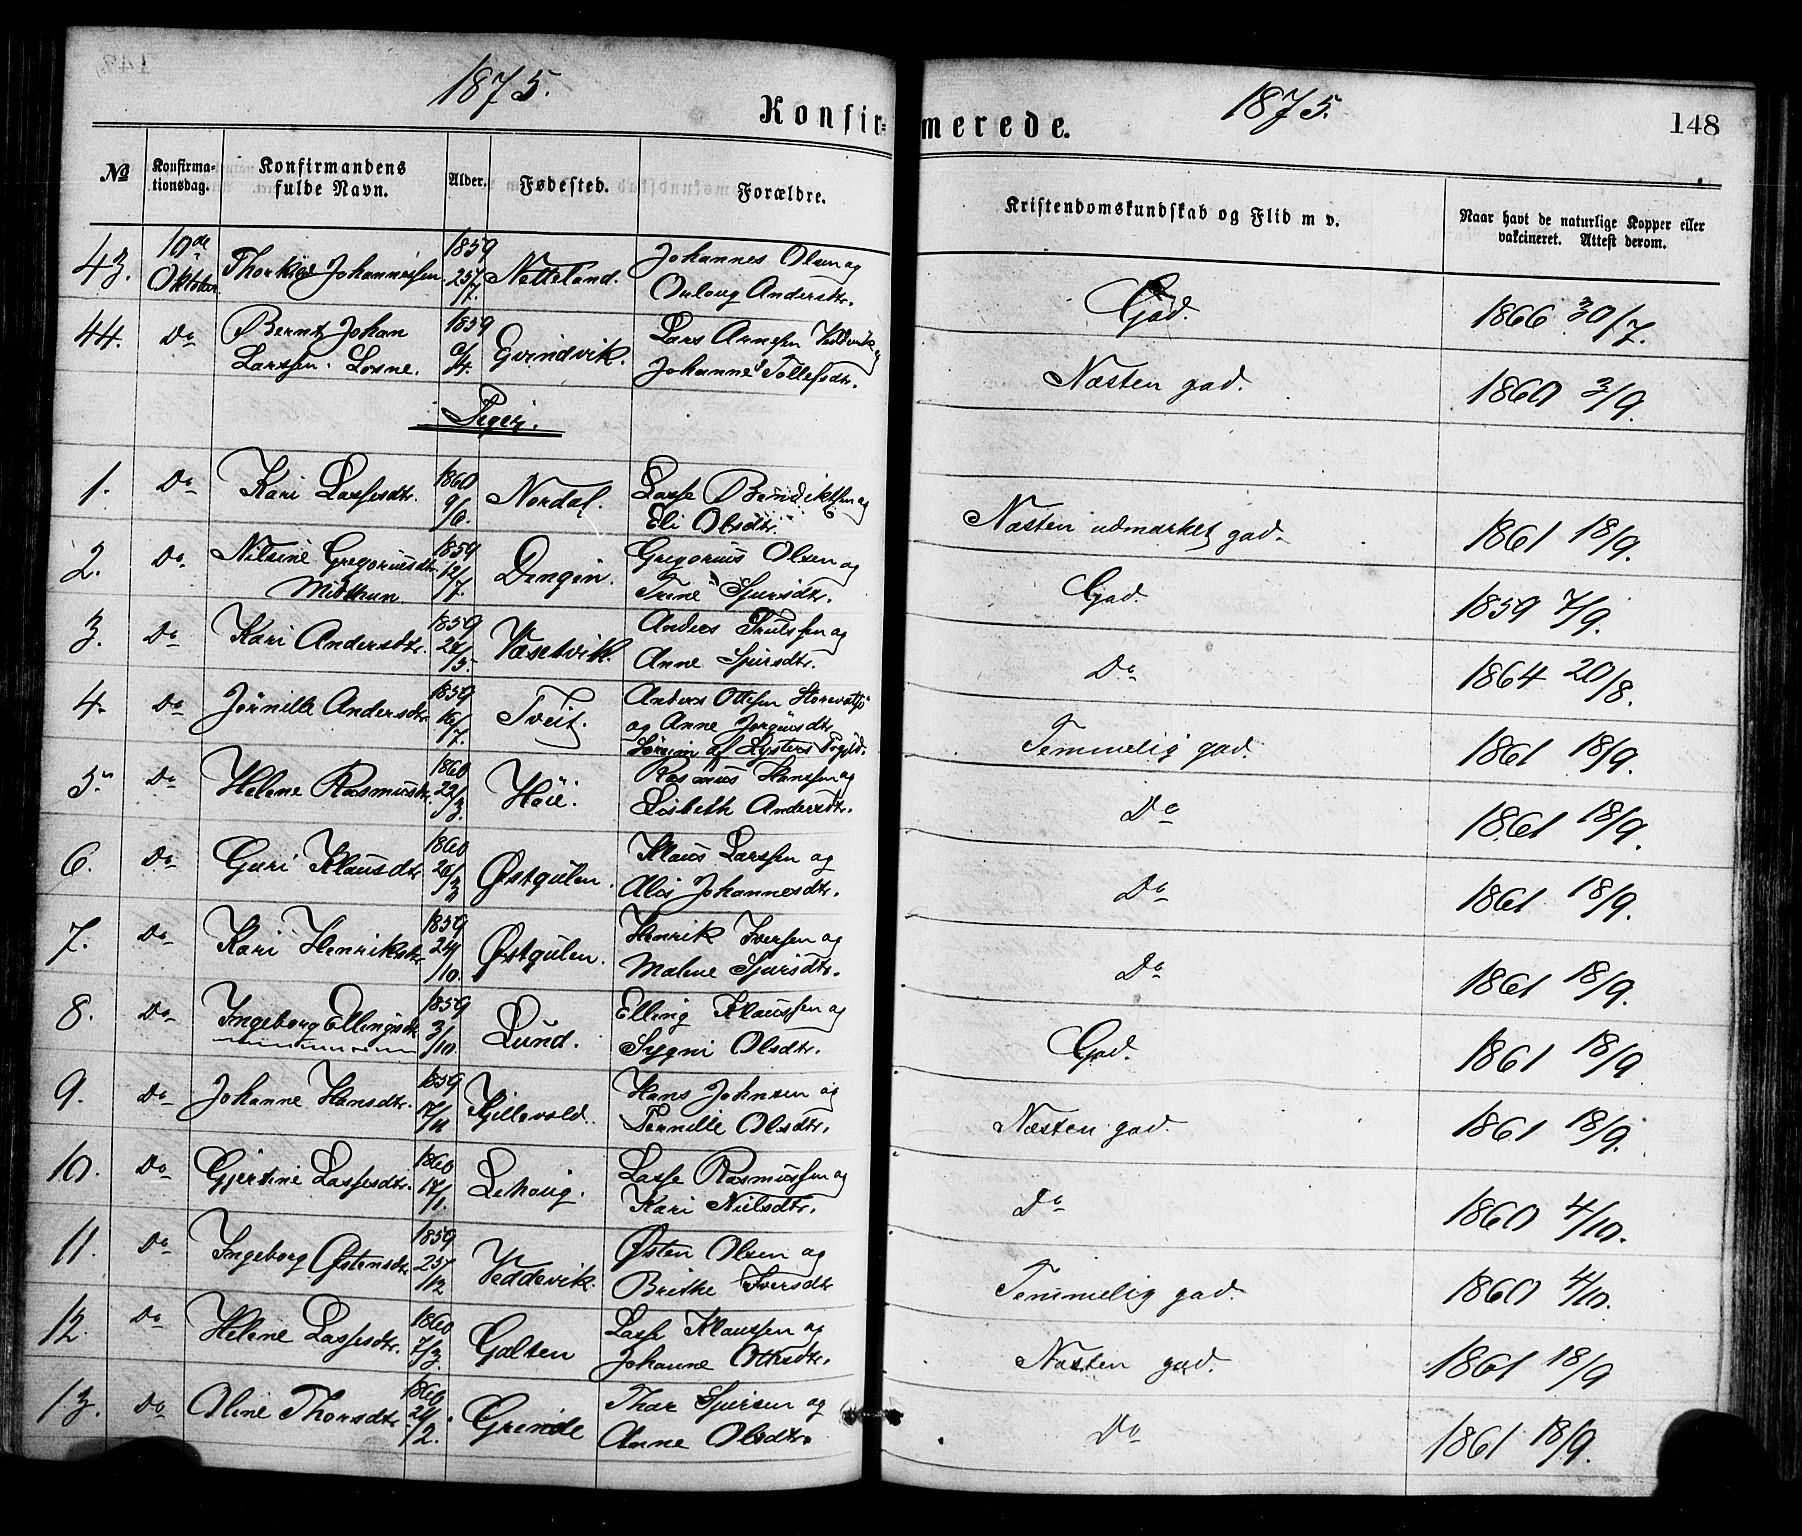 1875.
Konfir-
merede.
1875.
148
№
Konfirma-
tionsdag.
Konfirmandens
fulde Navn.
Alder.
Fødested.
Forældre.
Kristendomskundskab og Flid m v.
Naar havt de naturlige Kopper eller
vakcineret. Attest derom.
43. 10de Oktober Johannessen 1859 25/7. Netteland. Johannes Olsen og
Andersdtr. God. 1866 30/7.
44. Do Bernt Johan 1859 6/4. Evindvik. Lars Arnesen
Larssen. Losne. Johanne Tollefsdtr. Næsten god. 1860 3/9.
Piger.
1. Do Kari Lassesdtr. 1860 9/6. Nordal. Lasse Bendiktsen og
Eli Olsdtr. Næsten udmærket god. 1861 18/9.
2. Do Nilsine Gregoriusdtr. 1859 12/7. Dingen. Gregorius Olsen og
Midthun. Trine Sjursdtr. God. 1859 7/9.
3. Do Kari Andersdtr. 1859 27/5. Væsetvik. Anders Trulssen og
Anne Sjursdtr. Do 1864 20/8.
4. Do Jørnille Andersdtr. 1859 16/7. Tveit. Anders Ottesen
og Anne Jørgensdtr.
Søreim af Lysters Prgjld. Temmelig god. 1861 18/9.
5. Do Helene Rasmusdtr. 1860 22/3. Høie. Rasmus Hanssen og
Lisbeth Andersdtr. Do 1861 18/9.
6. Do Guri Klausdtr. 1860 26/3 Østgulen. Klaus Larssen og
Alis Johannesdtr. Do 1861 18/9.
7. Do Kari Henriksdtr. 1859 24/10. Østgulen. Henrik Iversen og
Malene Sjursdtr. Do 1861 18/9.
8. Do Ingeborg Ellingsdtr. 1859 3/10. Lund. Elling Klaussen og
Sygni Olsdtr. God. 1861 18/9
9. Do Johanne Hansdtr. 1859 17/11 Kjellevold. Hans Johnsen og
Pernille Olsdtr. Næsten god. 1861 18/9.
10. Do Gjertine Lassesdtr. 1860 17/1. Lehoug. Lasse Rasmussen og
Kari Nielsdtr. Do 1860 4/10.
11. Do Ingeborg Østensdtr. 1859 25/12 Veddevik. Østen Olsen og
Brithe Iversdtr Temmelig god. 1860 4/10.
12. Do Helene Lassesdtr. 1860 7/3. Galten Lasse Klaussen og
Johanne Ottesdtr. Næsten god. 1861 18/9
13. Do Oline Thorsdtr. 1860 24/2. Grinde Thor Sjursen og
Anne Olsdtr. Do 1861 18/9.